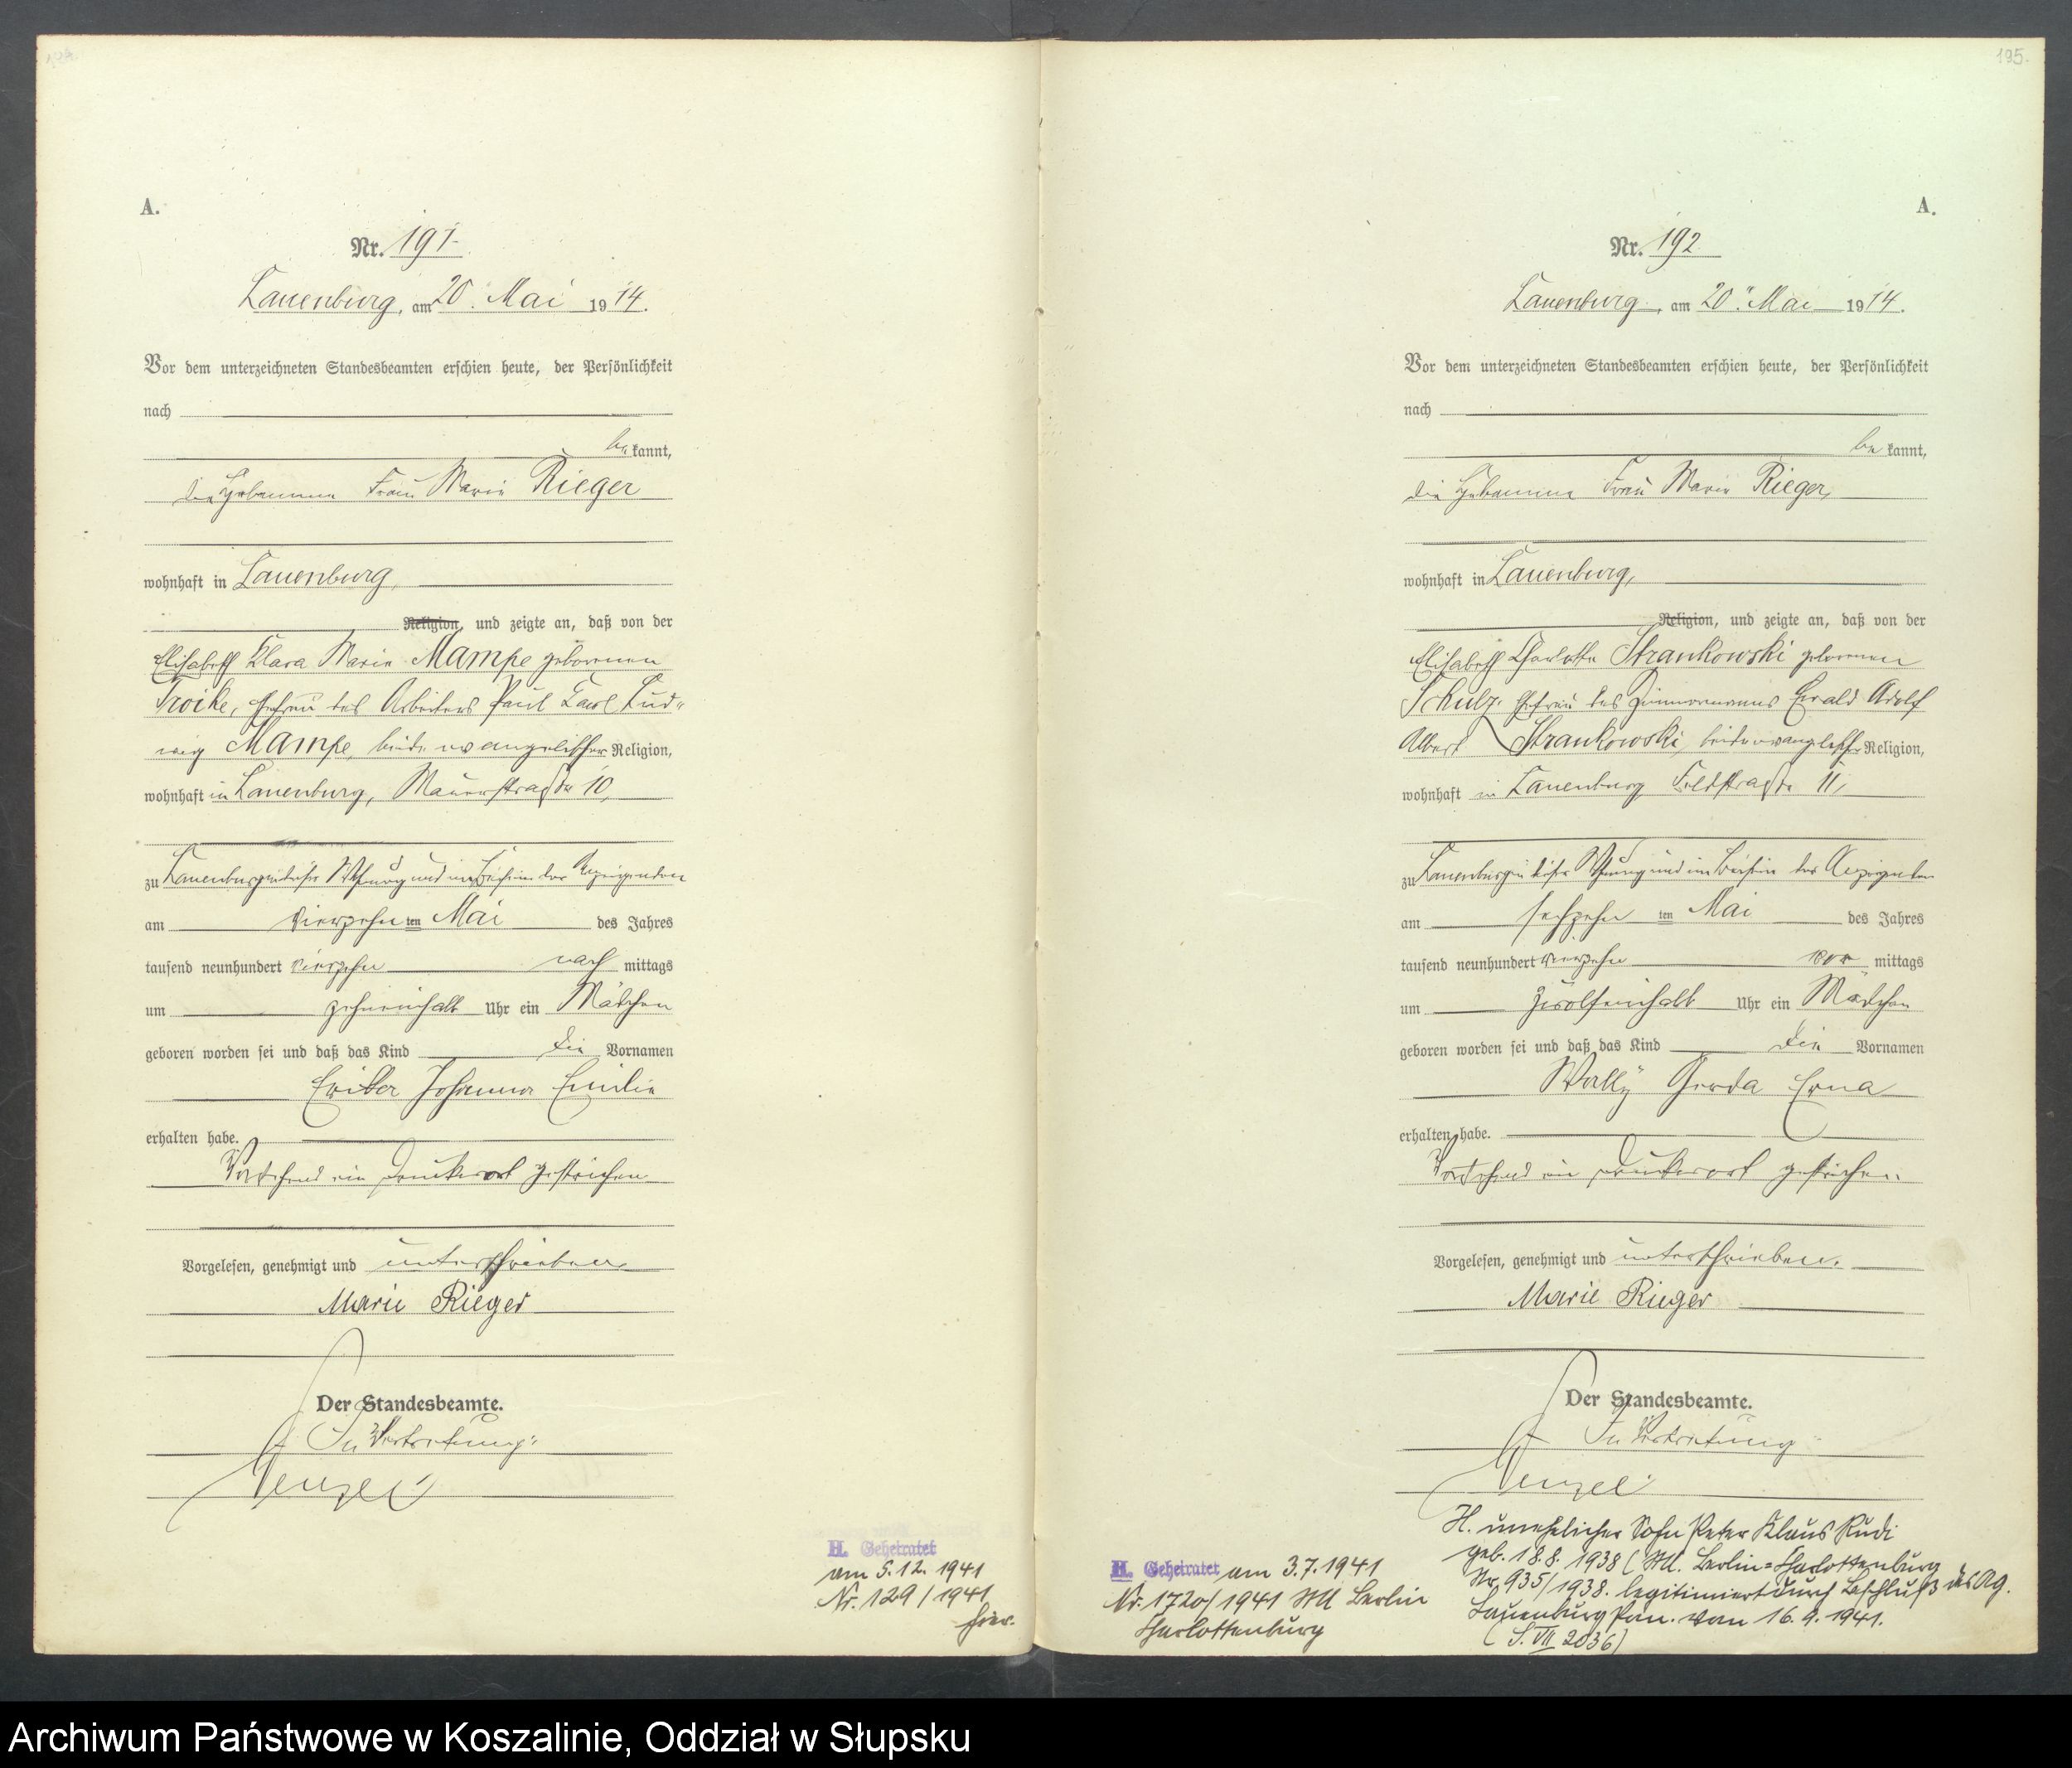 A.
Nr. 191
Lauenburg, am 20. Mai 1914.
Vor dem unterzeichneten Standesbeamten erschien heute, der Persönlichkeit
nach
be kannt,
die Hebamme Frau Marie Rieger
wohnhaft in Lauenburg,
Religion, und zeigte an, daß von der
Elisabeth Klara Marie Mampe geborenen
Troike, Ehefrau des Arbeiters Paul Carl Lud-
wig Mampe, beide evangelischer Religion,
wohnhaft in Lauenburg, Mauerstraße 10,
zu Lauenburg in dieser Wohnung und im Beisein der Anzeigenden
am vierzehn ten Mai des Jahres
tausend neunhundert vierzehn nach mittags
um zehneinhalb Uhr ein Mädchen
geboren worden sei und daß das Kind die Vornamen
Johanna Emilie
erhalten habe.
Vorstehend ein Druckwort gestrichen
Vorgelesen, genehmigt und unterschrieben
Marie Rieger
Der Standesbeamte.
In Vertretung:
H. Geheiratet
am 5.12.1941
Nr. 129/1941
hier.
195.
A.
Nr. 192
Lauenburg, am 20. Mai 1914.
Vor dem unterzeichneten Standesbeamten erschien heute, der Persönlichkeit
nach
be kannt,
die Hebamme Frau Marie Rieger,
wohnhaft in Lauenburg,
Religion, und zeigte an, daß von der
Elisabeth Charlotte Strankowski geborenen
Schulz, Ehefrau des Zimmermanns Ewald Adolf
Albert Strankowski, beide evangelischer Religion,
wohnhaft in Lauenburg Feldstraße 11,
zu Lauenburg in dieser Wohnung und im Beisein der Anzeigenden
am sechzehn ten Mai des Jahres
tausend neunhundert vierzehn vor mittags
um zwölfeinhalb Uhr ein Mädchen
geboren worden sei und daß das Kind die Vornamen
Wally Gerda Erna
erhalten habe.
Vorstehend ein Druckwort gestrichen.
Vorgelesen, genehmigt und unterschrieben.
Marie Rieger
Der Standesbeamte.
In Vertretung
H. Geheiratet am 3.7.1941
Nr. 1720/1941 StA Berlin
Charlottenburg
H. unehelicher Sohn Peter Klaus Rudi
geb. 18.8.1938 (StA. Berlin=Charlottenburg
Nr. 935/1938. legitimiert durch Beschluß des Ag.
Lauenburg Pom. vom 16.9.1941.
(S. VII 2036)
Archiwum Państwowe w Koszalinie, Oddział w Słupsku